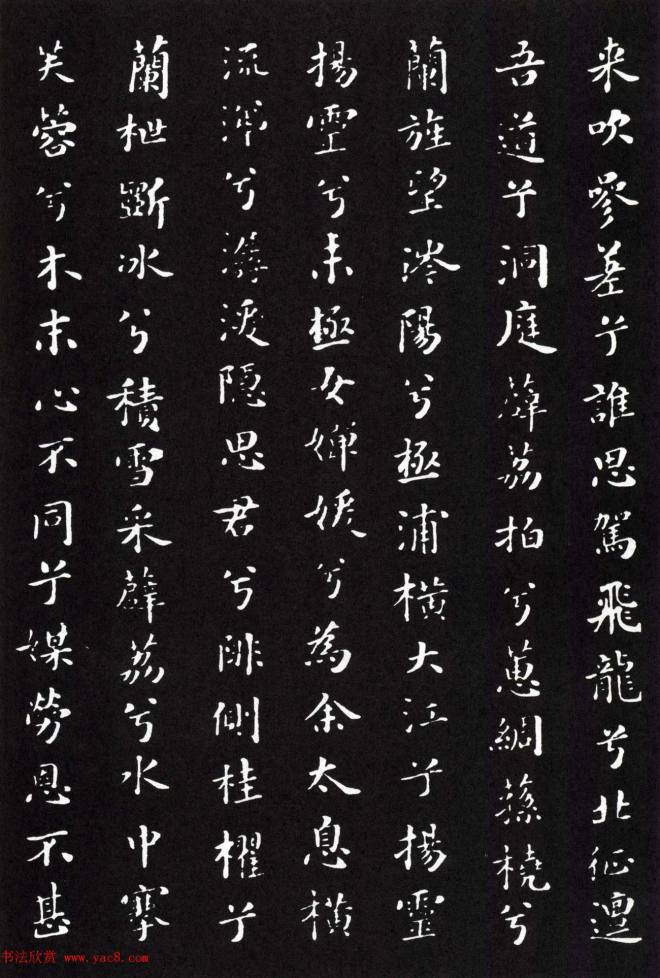 来吹參差兮誰思駕飛龍兮北征邅
吾道兮洞庭薜荔拍兮蕙綢蓀橈兮
蘭旌望涔陽兮極浦橫大江兮揚靈
揚靈兮未極女嬋媛兮為余太息橫
流涕兮潺湲隱思君兮陫側桂櫂兮
蘭枻斲冰兮積雪采薜荔兮水中搴
芙蓉兮木末心不同兮媒勞恩不甚
书法欣赏 www.yac8.com